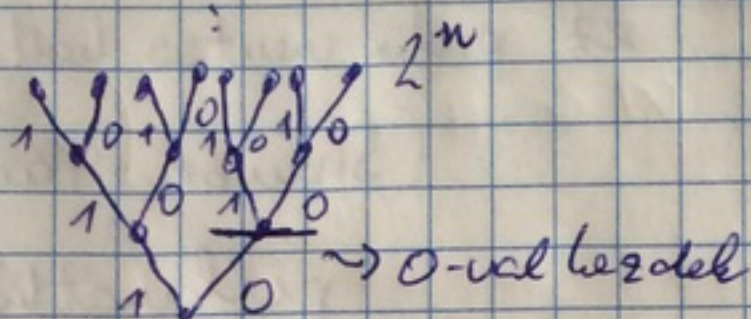 ⋮
2^n
1 0 1 0 1 0 1 0
1 0 1 0
~> 0-val kezdek
1 0